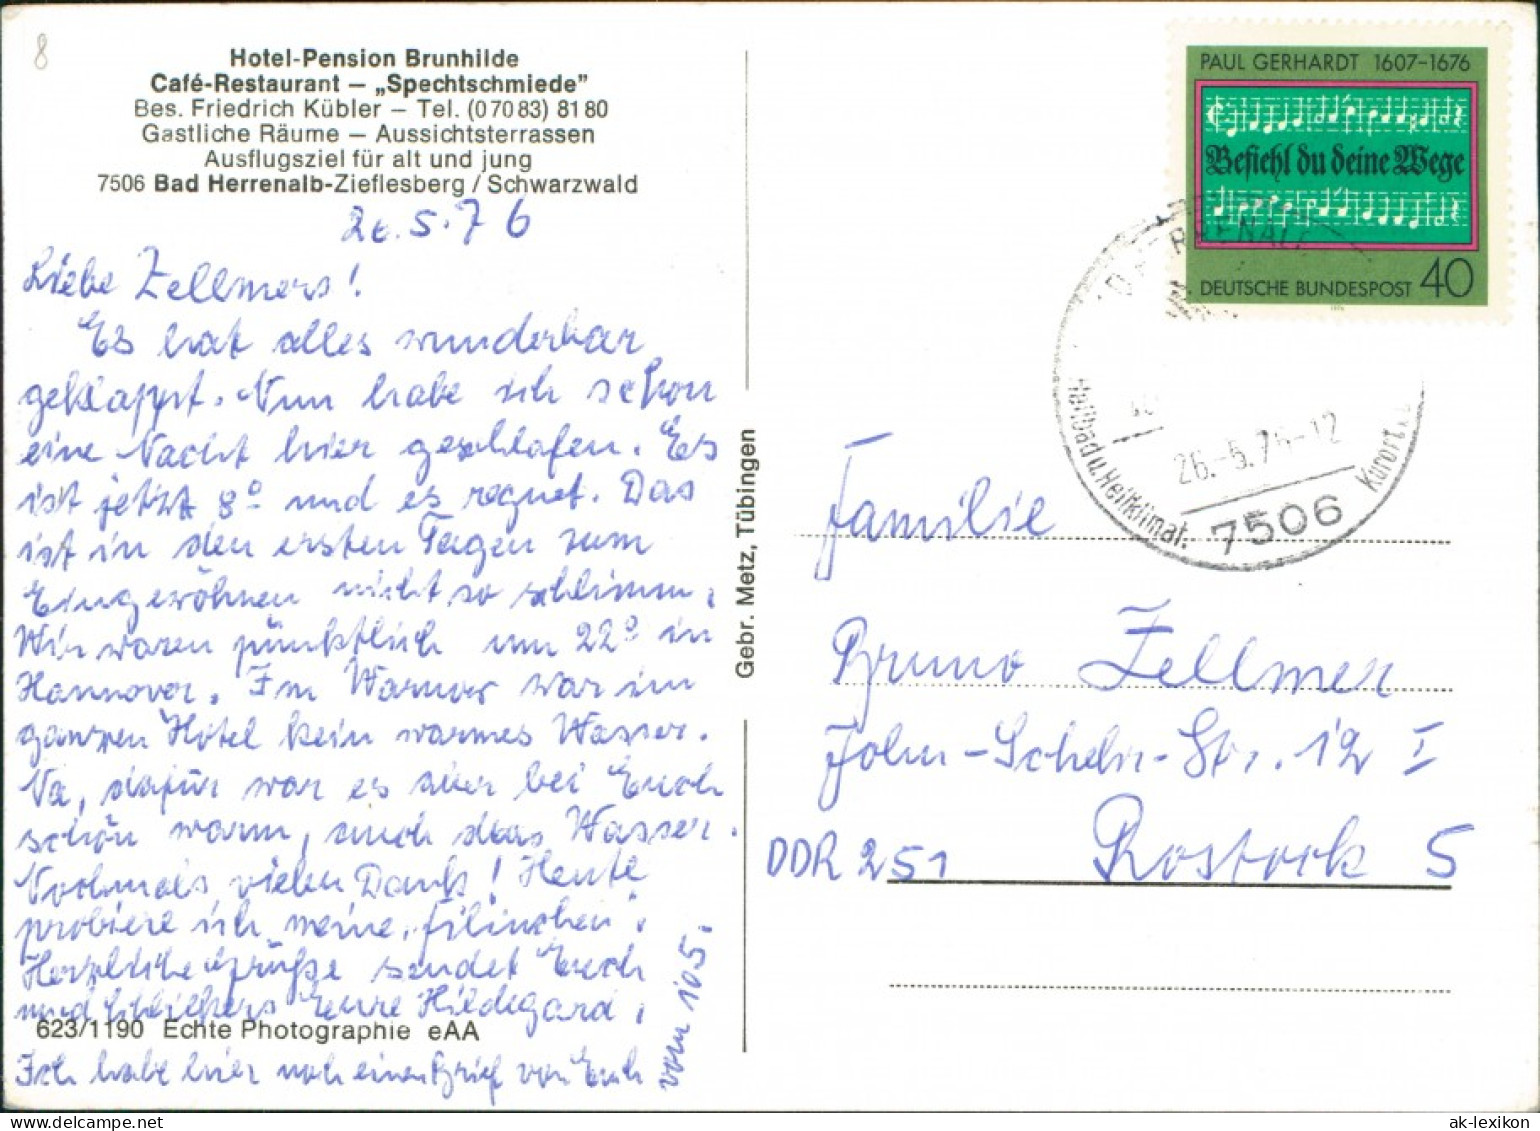 8
Hotel-Pension Brunhilde
Café-Restaurant – „Spechtschmiede”
Bes. Friedrich Kübler – Tel. (07083) 8180
Gastliche Räume – Aussichtsterrassen
Ausflugsziel für alt und jung
7506 Bad Herrenalb-Zieflesberg / Schwarzwald
26.5.76
Liebe Zellmers!
Es hat alles wunderbar
geklappt. Nun habe ich schon
eine Nacht hier geschlafen. Es
ist jetzt 8° und es regnet. Das
ist in den ersten Tagen zum
Eingewöhnen nicht so schlimm.
Wir waren pünktlich um 22° in
Hannover. Im Warnow war im
ganzen Hotel kein warmes Wasser.
Na, dafür war es aber bei Euch
schön warm, auch das Wasser.
Nochmals vielen Dank! Heute
probiere ich meine „Filinchen".
Herzliche Grüße sendet Euch
und Eure Hildegard.
623/1190 Echte Photographie eAA
Ich habe hier noch einen Brief von Euch
vom 10.5.
Gebr. Metz, Tübingen
PAUL GERHARDT 1607–1676
Befiehl du deine Wege
DEUTSCHE BUNDESPOST 40
26.-5.76-12
Heilbad u. Heilklimat. Kurort
7506
Familie
Bruno Zellmer
John-Schehr-Str. 12 I
DDR 251 Rostock 5
ak-lexikon